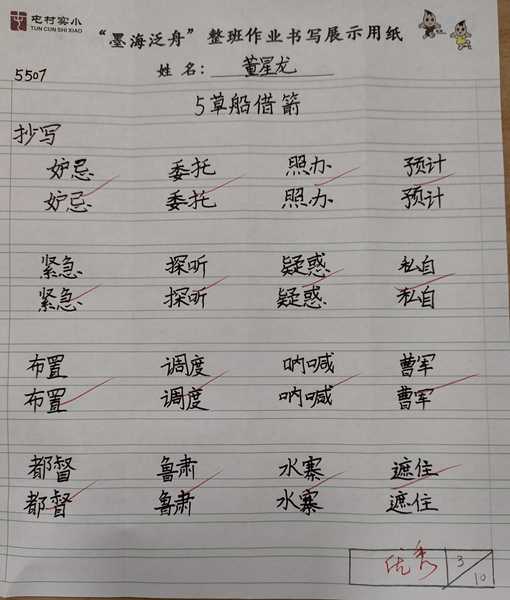 屯村实小
TUN CUN SHI XIAO
“墨海泛舟”整班作业书写展示用纸
5507
姓名：董星龙
5草船借箭
抄写
妒忌 委托 照办 预计
妒忌 委托 照办 预计
紧急 探听 疑惑 私自
紧急 探听 疑惑 私自
布置 调度 呐喊 曹军
布置 调度 呐喊 曹军
都督 鲁肃 水寨 遮住
都督 鲁肃 水寨 遮住
优秀 3/10